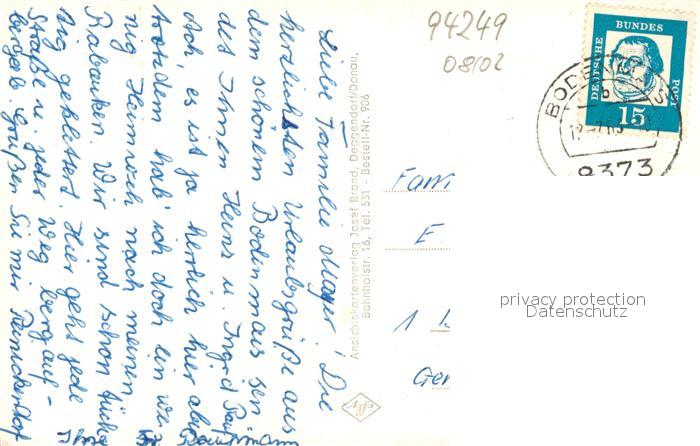 94249
08/02
DEUTSCHE BUNDES POST
15
BODENMAIS
b
8373
Liebe Familie Mayer! Die
herzlichsten Urlaubsgrüße aus
dem schönem Bodenmais sen
des Ihnen Heinz u. Ingrid
Ach, es ist ja herrlich hier aber
trotzdem hab' ich doch ein we
nig Heimweh nach meinen
Rabauken. Wir sind schon tüch
tig geklettert. Hier geht jede
Straße u. jeder Weg bergauf-
bergab. Grüßen Sie mir
Ihre
Ansichtskartenverlag Josef Brand, Deggendorf/Donau,
Bahnhofstr. 16, Tel. 531 - Bestell-Nr. 906
Fam
E
1
Ger
privacy protection
Datenschutz